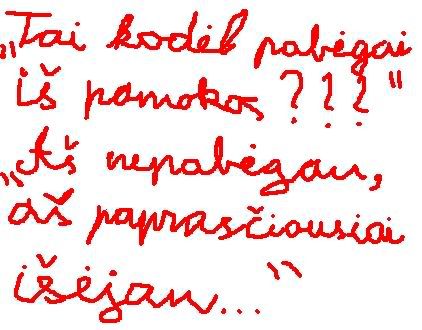 „Tai kodėl pabėgai
iš pamokos ???"
„Aš nepabėgau,
aš paprasčiausiai
išėjau..."